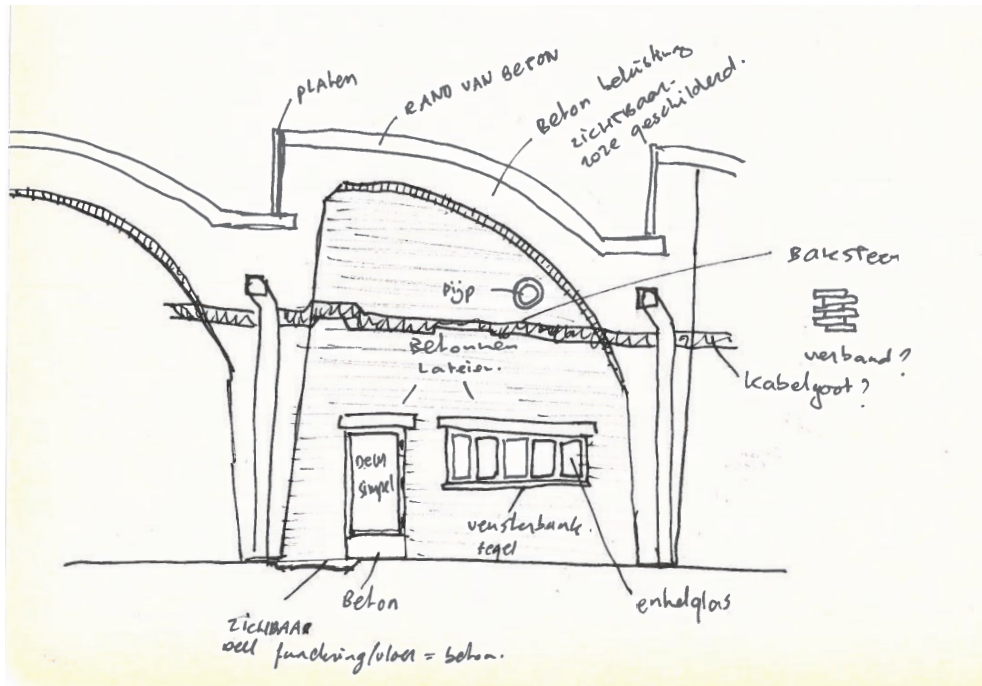 PLATEN
RAND VAN BETON
Beton bekisting
zichtbaar.
roze geschilderd.
Baksteen
pijp
verband?
Kabelgoot?
Betonnen
Lateien.
Deur
simpel
vensterbank.
tegel
enkelglas
Beton
ZICHTBAAR
deel fundering/vloer = beton.